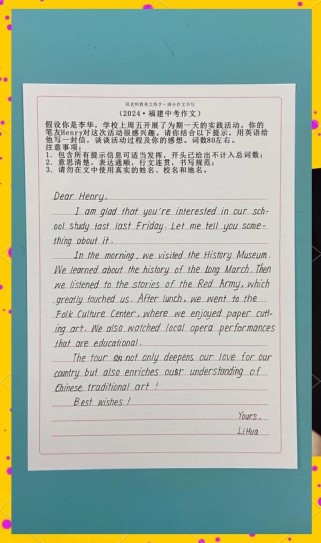 (2024·福建中考作文)
假设你是李华，学校上周五开展了为期一天的实践活动。你的
笔友Henry对这次活动很感兴趣。请你结合以下提示，用英语给
他写一封信，谈谈活动过程及你的感想。词数80左右。
注意事项：
1. 包含所有提示信息可适当发挥，开头已给出不计入总词数；
2. 意思清楚，表达通顺，行文连贯，书写规范；
3. 请勿在文中使用真实的姓名、校名和地名。
Dear Henry,
I am glad that you're interested in our sch-
ool study tast last Friday. Let me tell you some-
thing about it.
In the morning, we visited the History Museum.
We learned about the history of the Long March. Then
we listened to the stories of the Red Army, which
greatly touched us. After lunch, we went to the
Folk Culture Center, where we enjoyed paper cutt-
ing art. We also watched local opera performances
that are educational.
The tour not only deepens our love for our
country but also enriches our understanding of
Chinese traditional art!
Best wishes!
Yours,
LiHua